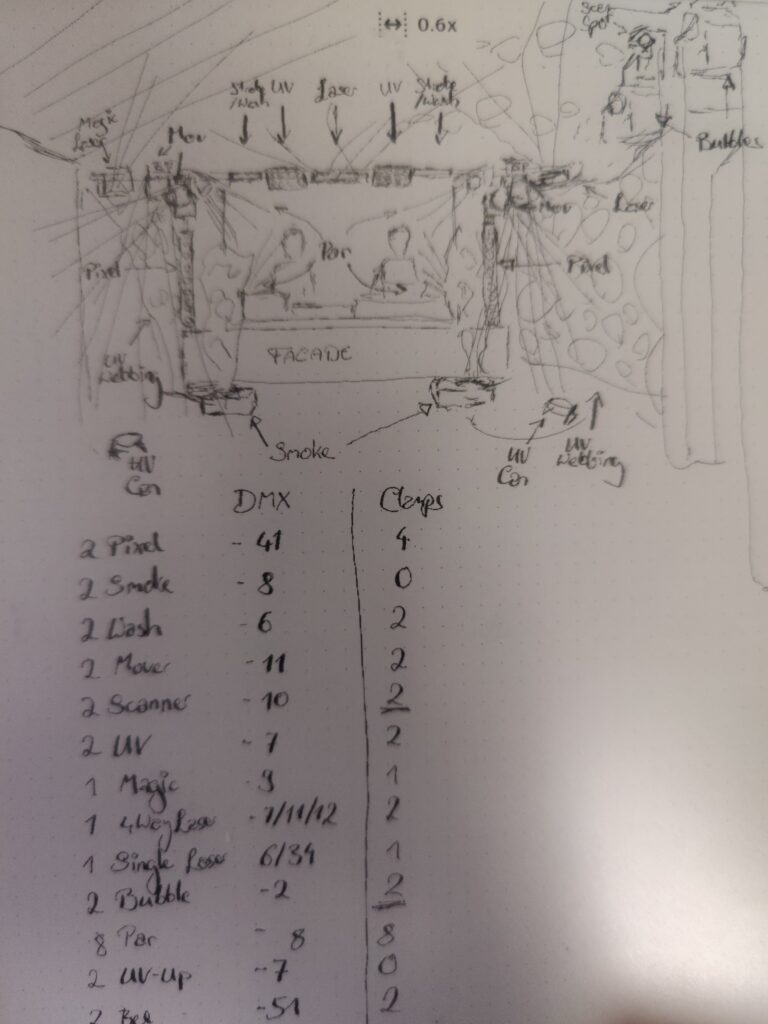 0.6x
Scan
Spot
Strobe
/Wash
UV
Laser
UV
Strobe
/Wash
Magic
Laser
Mov
Bubbles
Mov
Laser
Par
Pixel
Pixel
FACADE
UV
Webbing
Smoke
UV
Can
UV
Can
UV
Webbing
DMX Clamps
2 Pixel - 41 4
2 Smoke - 8 0
2 Wash - 6 2
2 Mover - 11 2
2 Scanner - 10 2
2 UV - 7 2
1 Magic - 9 1
1 4WayLaser - 7/11/12 2
1 Single Laser 6/34 1
2 Bubble - 2 2
8 Par - 8 8
2 UV-Up - 7 0
2 - 51 2